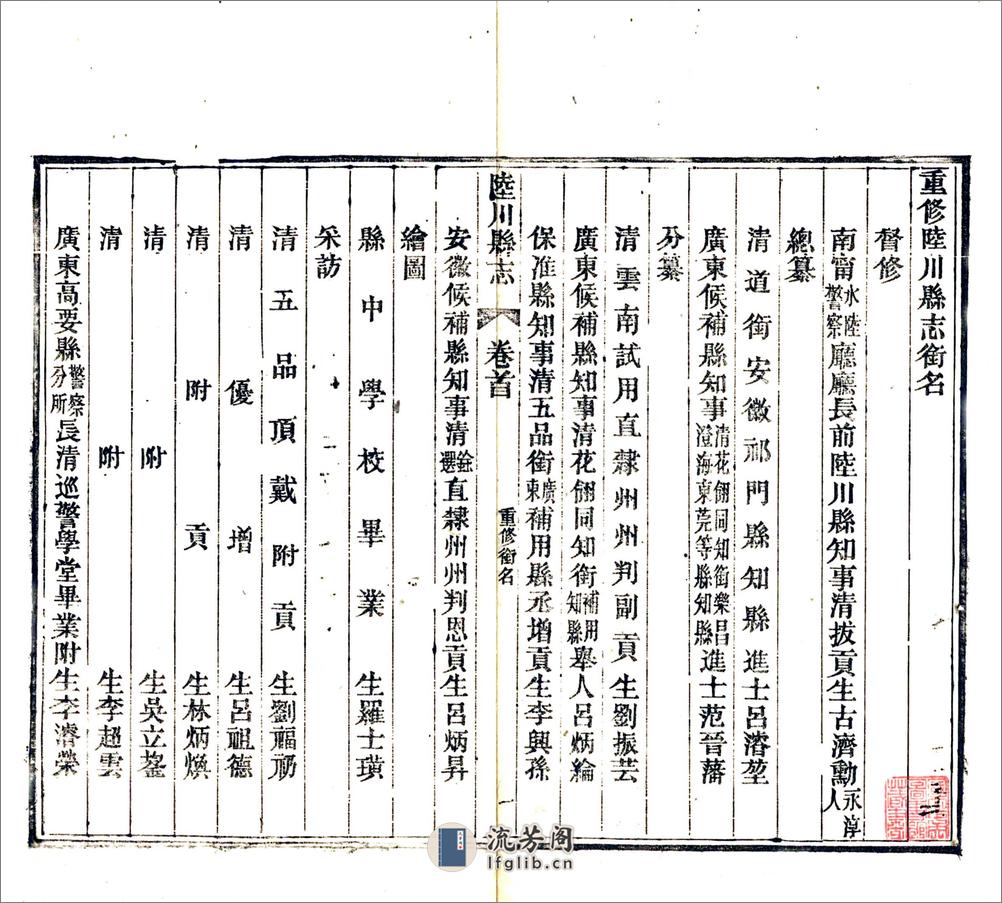 重修陸川縣志銜名
督修
南甯水陸警察廳廳長前陸川縣知事清拔貢生古濟勳永淳人
總纂
清道銜安徽祁門縣知縣進士呂濬堃
廣東候補縣知事清花翎同知銜榮昌澄海東莞等縣知縣進士范晉藩
分纂
清雲南試用直隸州州判副貢生劉振芸
廣東候補縣知事清花翎同知銜補用知縣舉人呂炳綸
保准縣知事清五品銜廣東補用縣丞增貢生李興孫
陸川縣志 卷首 重修銜名 一
安徽候補縣知事清僉選直隸州州判恩貢生呂炳昇
繪圖
縣中學校畢業生羅士璜
采訪
清五品頂戴附貢生劉福礽
清優增生呂祖德
清附貢生林炳煥
清附生吳立鋆
清附生李超雲
廣東高要縣警察分所長清巡警學堂畢業附生李濬榮
流芳阁
lfglib.cn